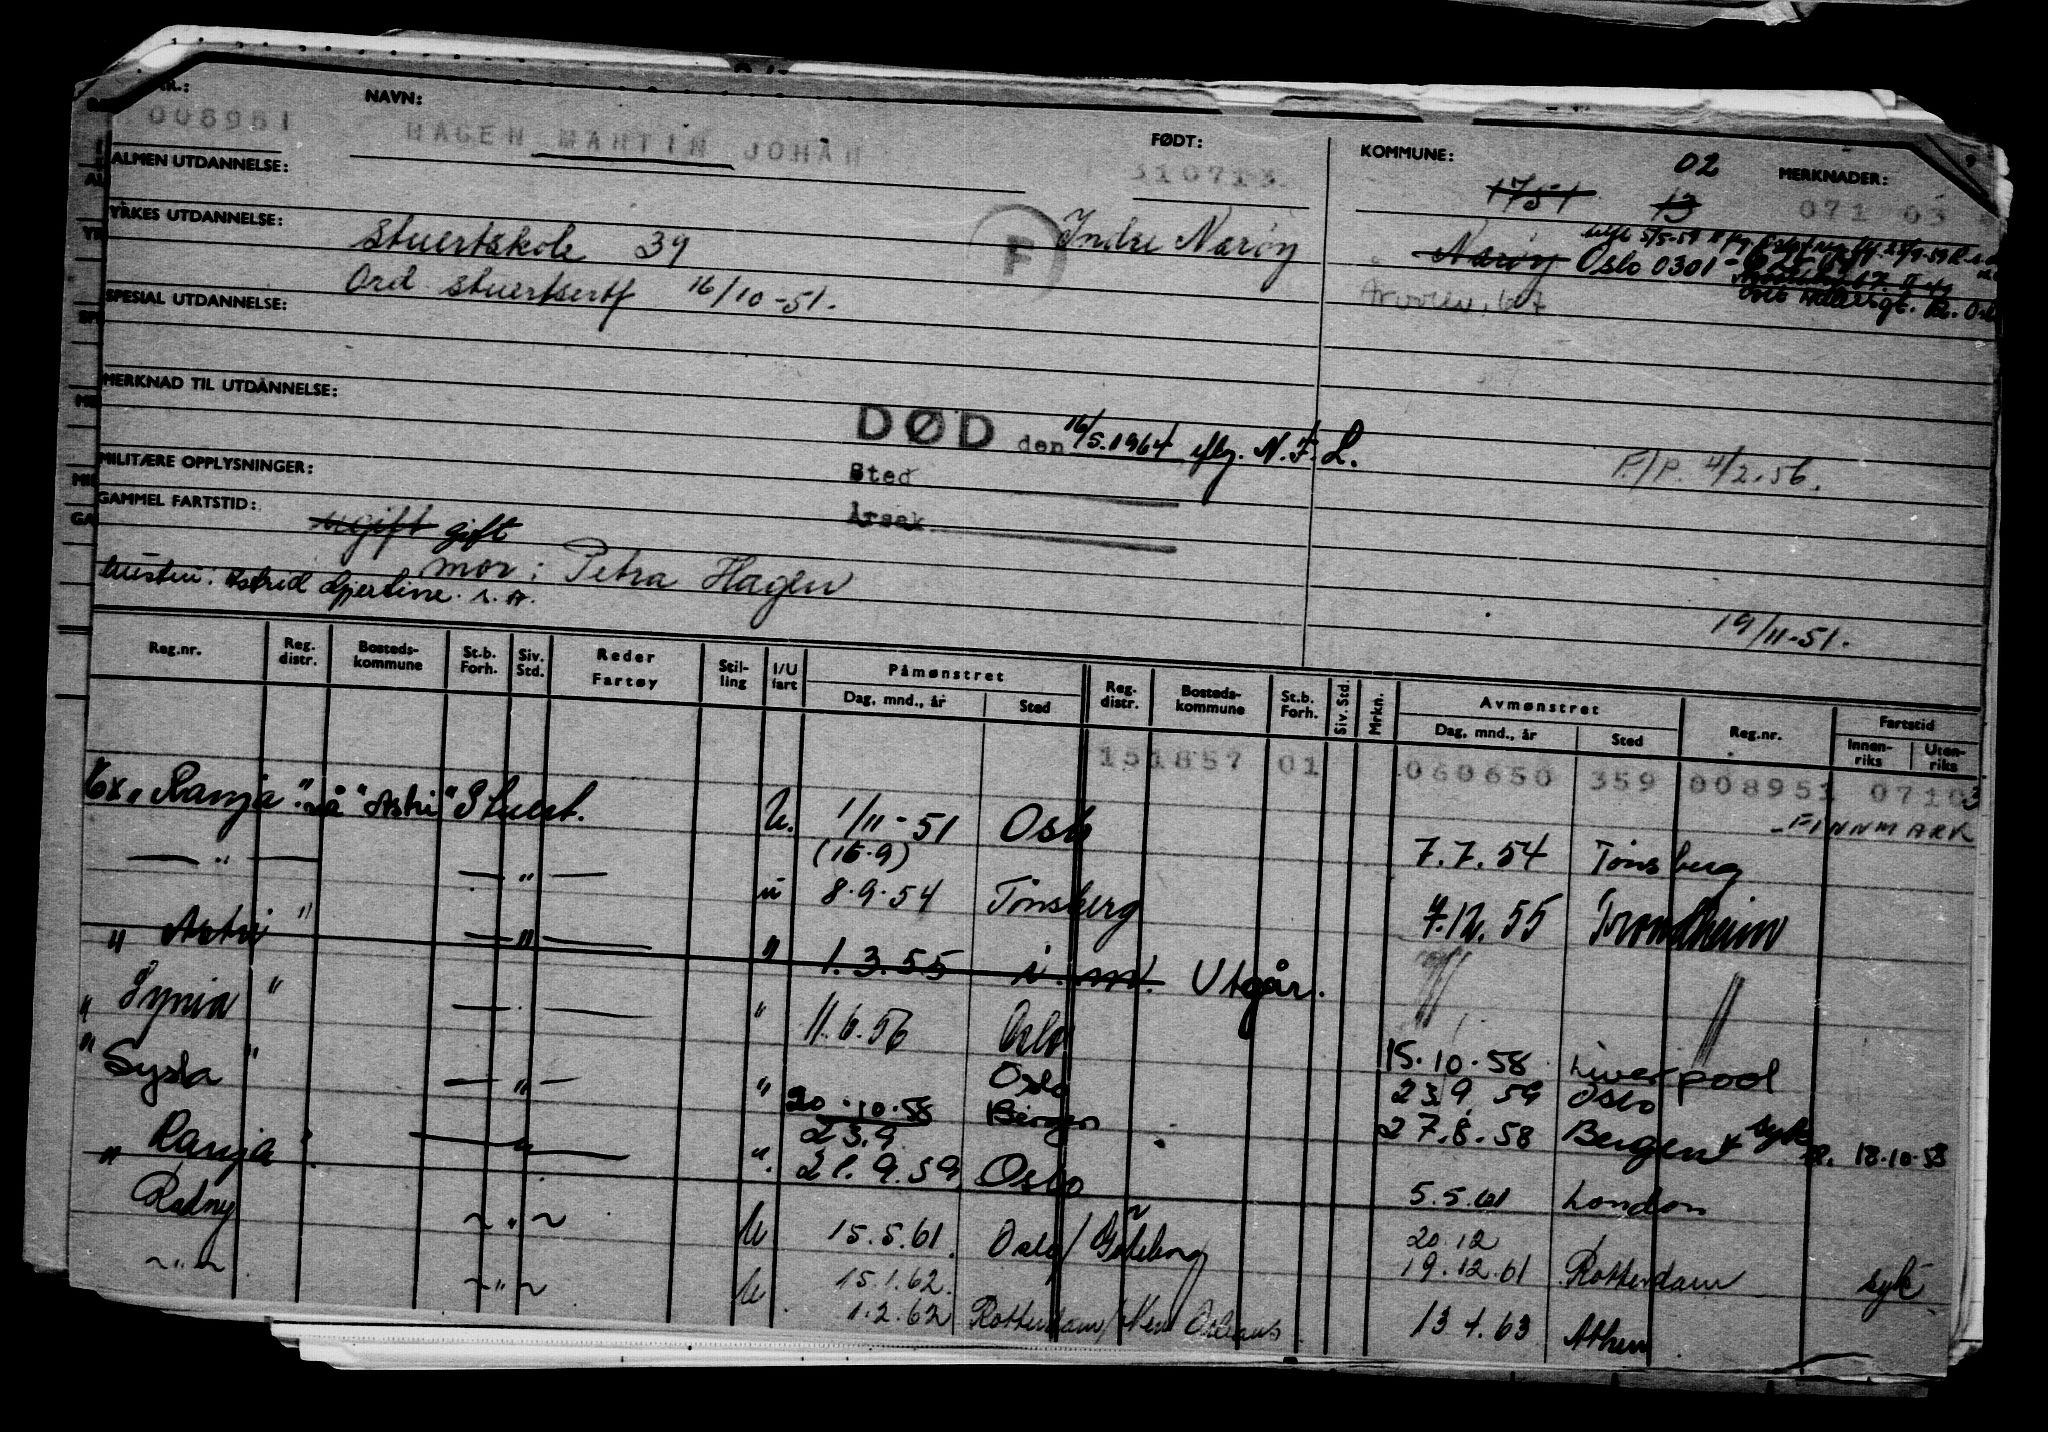 NR.: NAVN: FØDT: KOMMUNE: 02 MERKNADER:
008951 HAGEN MARTIN JOHAN 310713 1751 13 071 03
ALMEN UTDANNELSE:
YRKES UTDANNELSE: Stuertskole 39 F Indre Narøy Narøy Oslo 0301
Ord. stuertsertf 16/10-51.
SPESIAL UTDANNELSE:
MERKNAD TIL UTDANNELSE:
DØD den 16/5.1964 iflg. N.F.L.
MILITÆRE OPPLYSNINGER: Sted P./P. 4/2.56.
GAMMEL FARTSTID: Årsak
ugift gift
mor: Petra Hagen
hustru: Astrid Gjertine s.a.
19/11-51.
Reg.nr. Reg. distr. Bosteds-kommune St.b. Forh. Siv. Std. Reder Fartøy Stil-ling I/U fart Påmønstret Reg. distr. Bosteds-kommune St.b. Forh. Siv. Std. Mrkn. Avmønstret Reg.nr. Fartstid
Dag, mnd., år Sted Dag, mnd., år Sted Innen-riks Uten-riks
151857 01 060650 359 008951 07103
-FINNMARK
Ex. "Ranja" nå "Astri" Stuert. U. 1/11-51 Oslo 7.7.54 Tønsberg
— " — — " — u (15.9) 8.9.54 Tønsberg 7.12.55 Trondheim
" Astri " — " — " 1.3.55 i. m. Utgår.
" Synia " — " — " 11.6.56 Oslo 15.10.58 Liverpool
" Sysla " — " — " Oslo 23.9.59 Oslo
20.10.58 Bergen 27.8.58 Bergen syk 18.10.58
23.9.
" Ranja — " — ". 21.9.59 Oslo 5.5.61 London
Radny ~ " ~ U 15.5.61. Oslo/Gøteborg 20.12
19.12.61 Rotterdam syk
~ " ~ ~ " ~ U 15.1.62.
1.2.62 Rotterdam/New Orleans 13.1.63 Athen